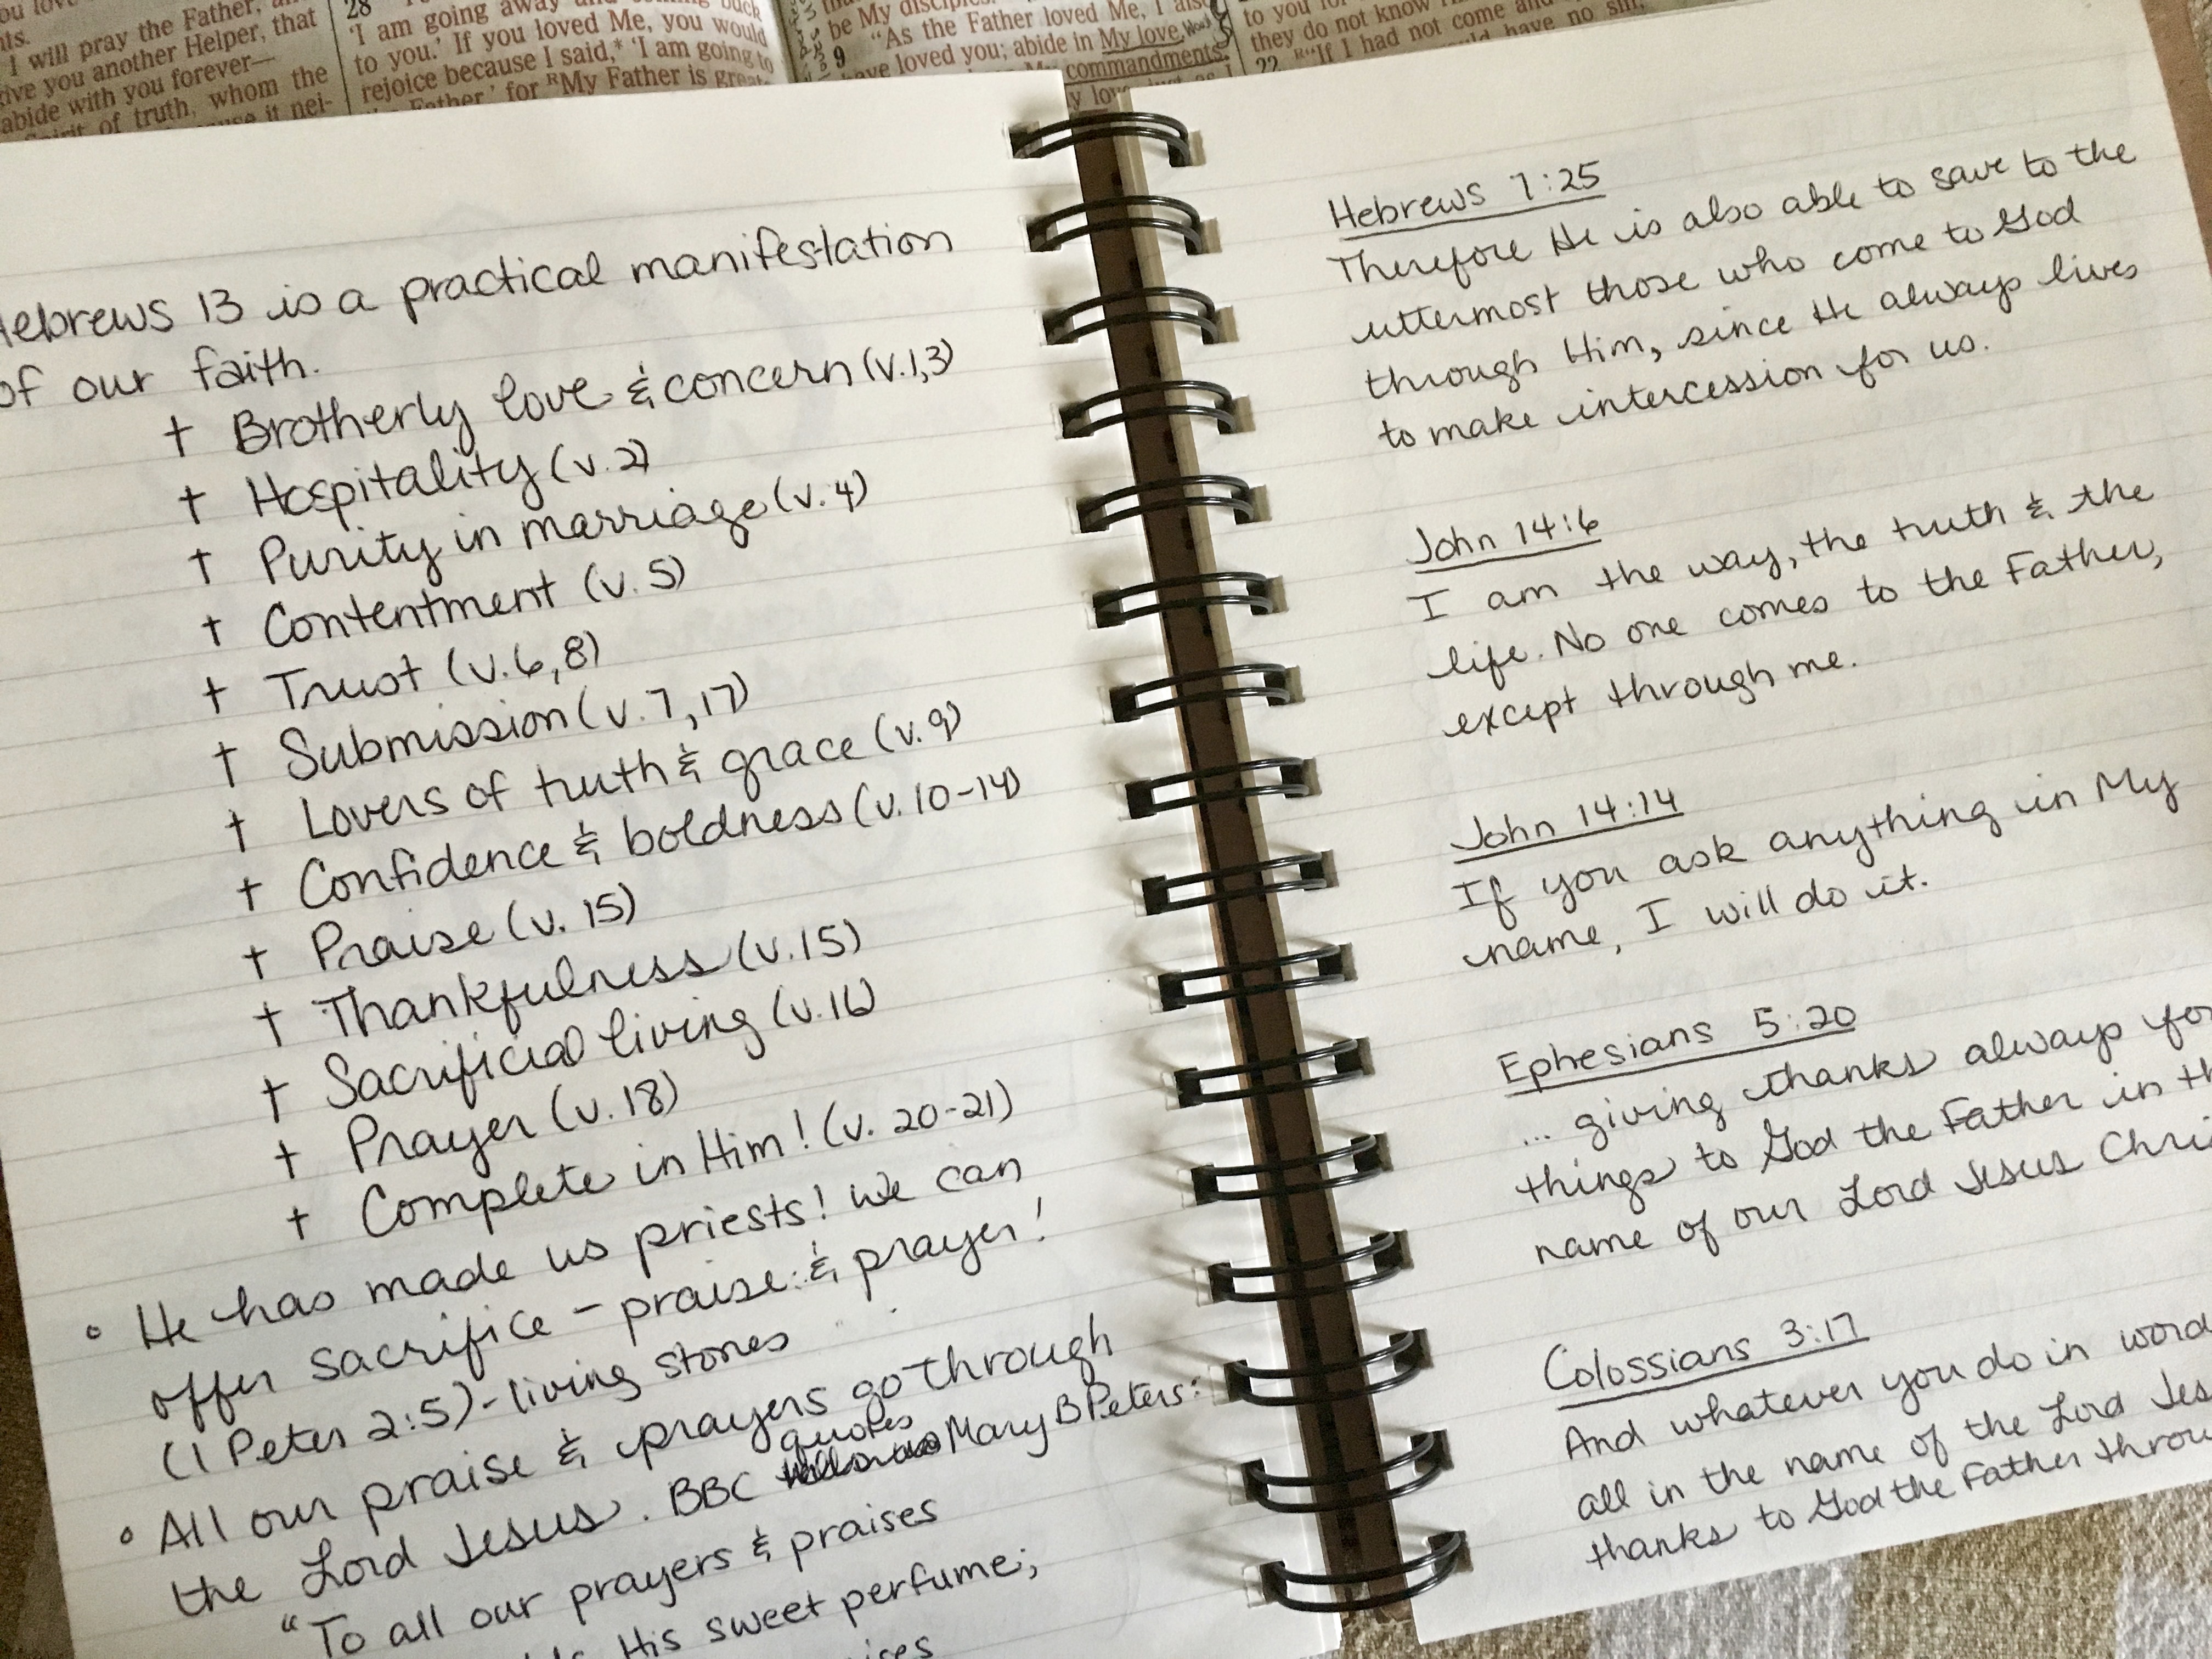 I will pray the Father,
give you another Helper, that
abide with you forever—
Spirit of truth, whom the
it nei-
28
'I am going away
to you.' If you loved Me, you would
rejoice because I said,* 'I am going to
Father,' for RMy Father is
be My
9 "As the Father loved Me, I also
have loved you; abide in My love.
commandments,
to you
they do not know
22 R"If I had not come and
have no sin,
Hebrews 13 is a practical manifestation
of our faith.
† Brotherly love & concern (v.1,3)
† Hospitality (v.2)
† Purity in marriage (v.4)
† Contentment (v.5)
† Trust (v.6,8)
† Submission (v.7,17)
† Lovers of truth & grace (v.9)
† Confidence & boldness (v.10-14)
† Praise (v. 15)
† Thankfulness (v.15)
† Sacrificial living (v.16)
† Prayer (v.18)
† Complete in Him! (v. 20-21)
• He has made us priests! We can
offer sacrifice - praise & prayer!
(1 Peter 2:5)-living stones
• All our praise & prayers go through
the Lord Jesus. BBC quotes Mary B Peters:
"To all our prayers & praises
His sweet perfume;
Hebrews 7:25
Therefore He is also able to save to the
uttermost those who come to God
through Him, since He always lives
to make intercession for us.
John 14:6
I am the way, the truth & the
life. No one comes to the Father,
except through me.
John 14:14
If you ask anything in My
name, I will do it.
Ephesians 5:20
... giving thanks always for
things to God the Father in th
name of our Lord Jesus Chri
Colossians 3:17
And whatever you do in word
all in the name of the Lord Jes
thanks to God the Father throu